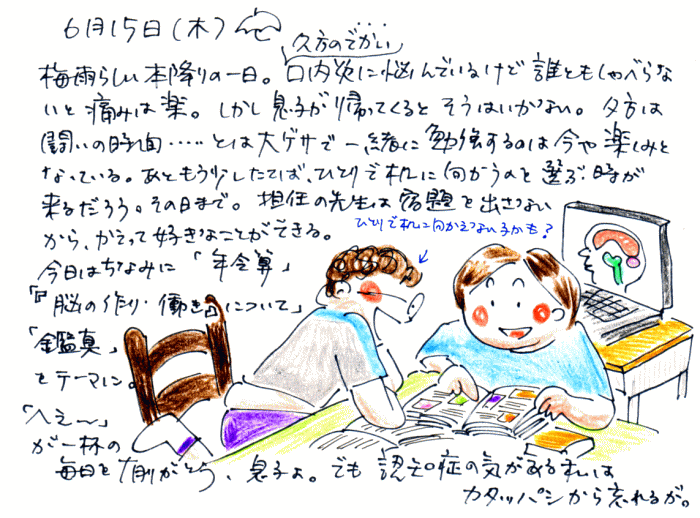 6月15日(木)
久方のでかい
梅雨らしい本降りの一日。口内炎に悩んでいるけど誰ともしゃべらな
いと痛みは楽。しかし息子が帰ってくるとそうはいかない。夕方は
闘いの時間……とは大ゲサで一緒に勉強するのは今や楽しみと
なっている。あともう少したてば、ひとりで机に向かうのを選ぶ時が
来るだろう。その日まで。担任の先生は宿題を出さない
から、かえって好きなことができる。
ひとりで机に向かえない子かも?
今日はちなみに「年令算」
『脳の作り・働き』について」
「鑑真」
をテーマに。
「へえ〜」
が一杯の
毎日をありがとう、息子よ。でも認知症の気がある私は
カタッパシから忘れるが。